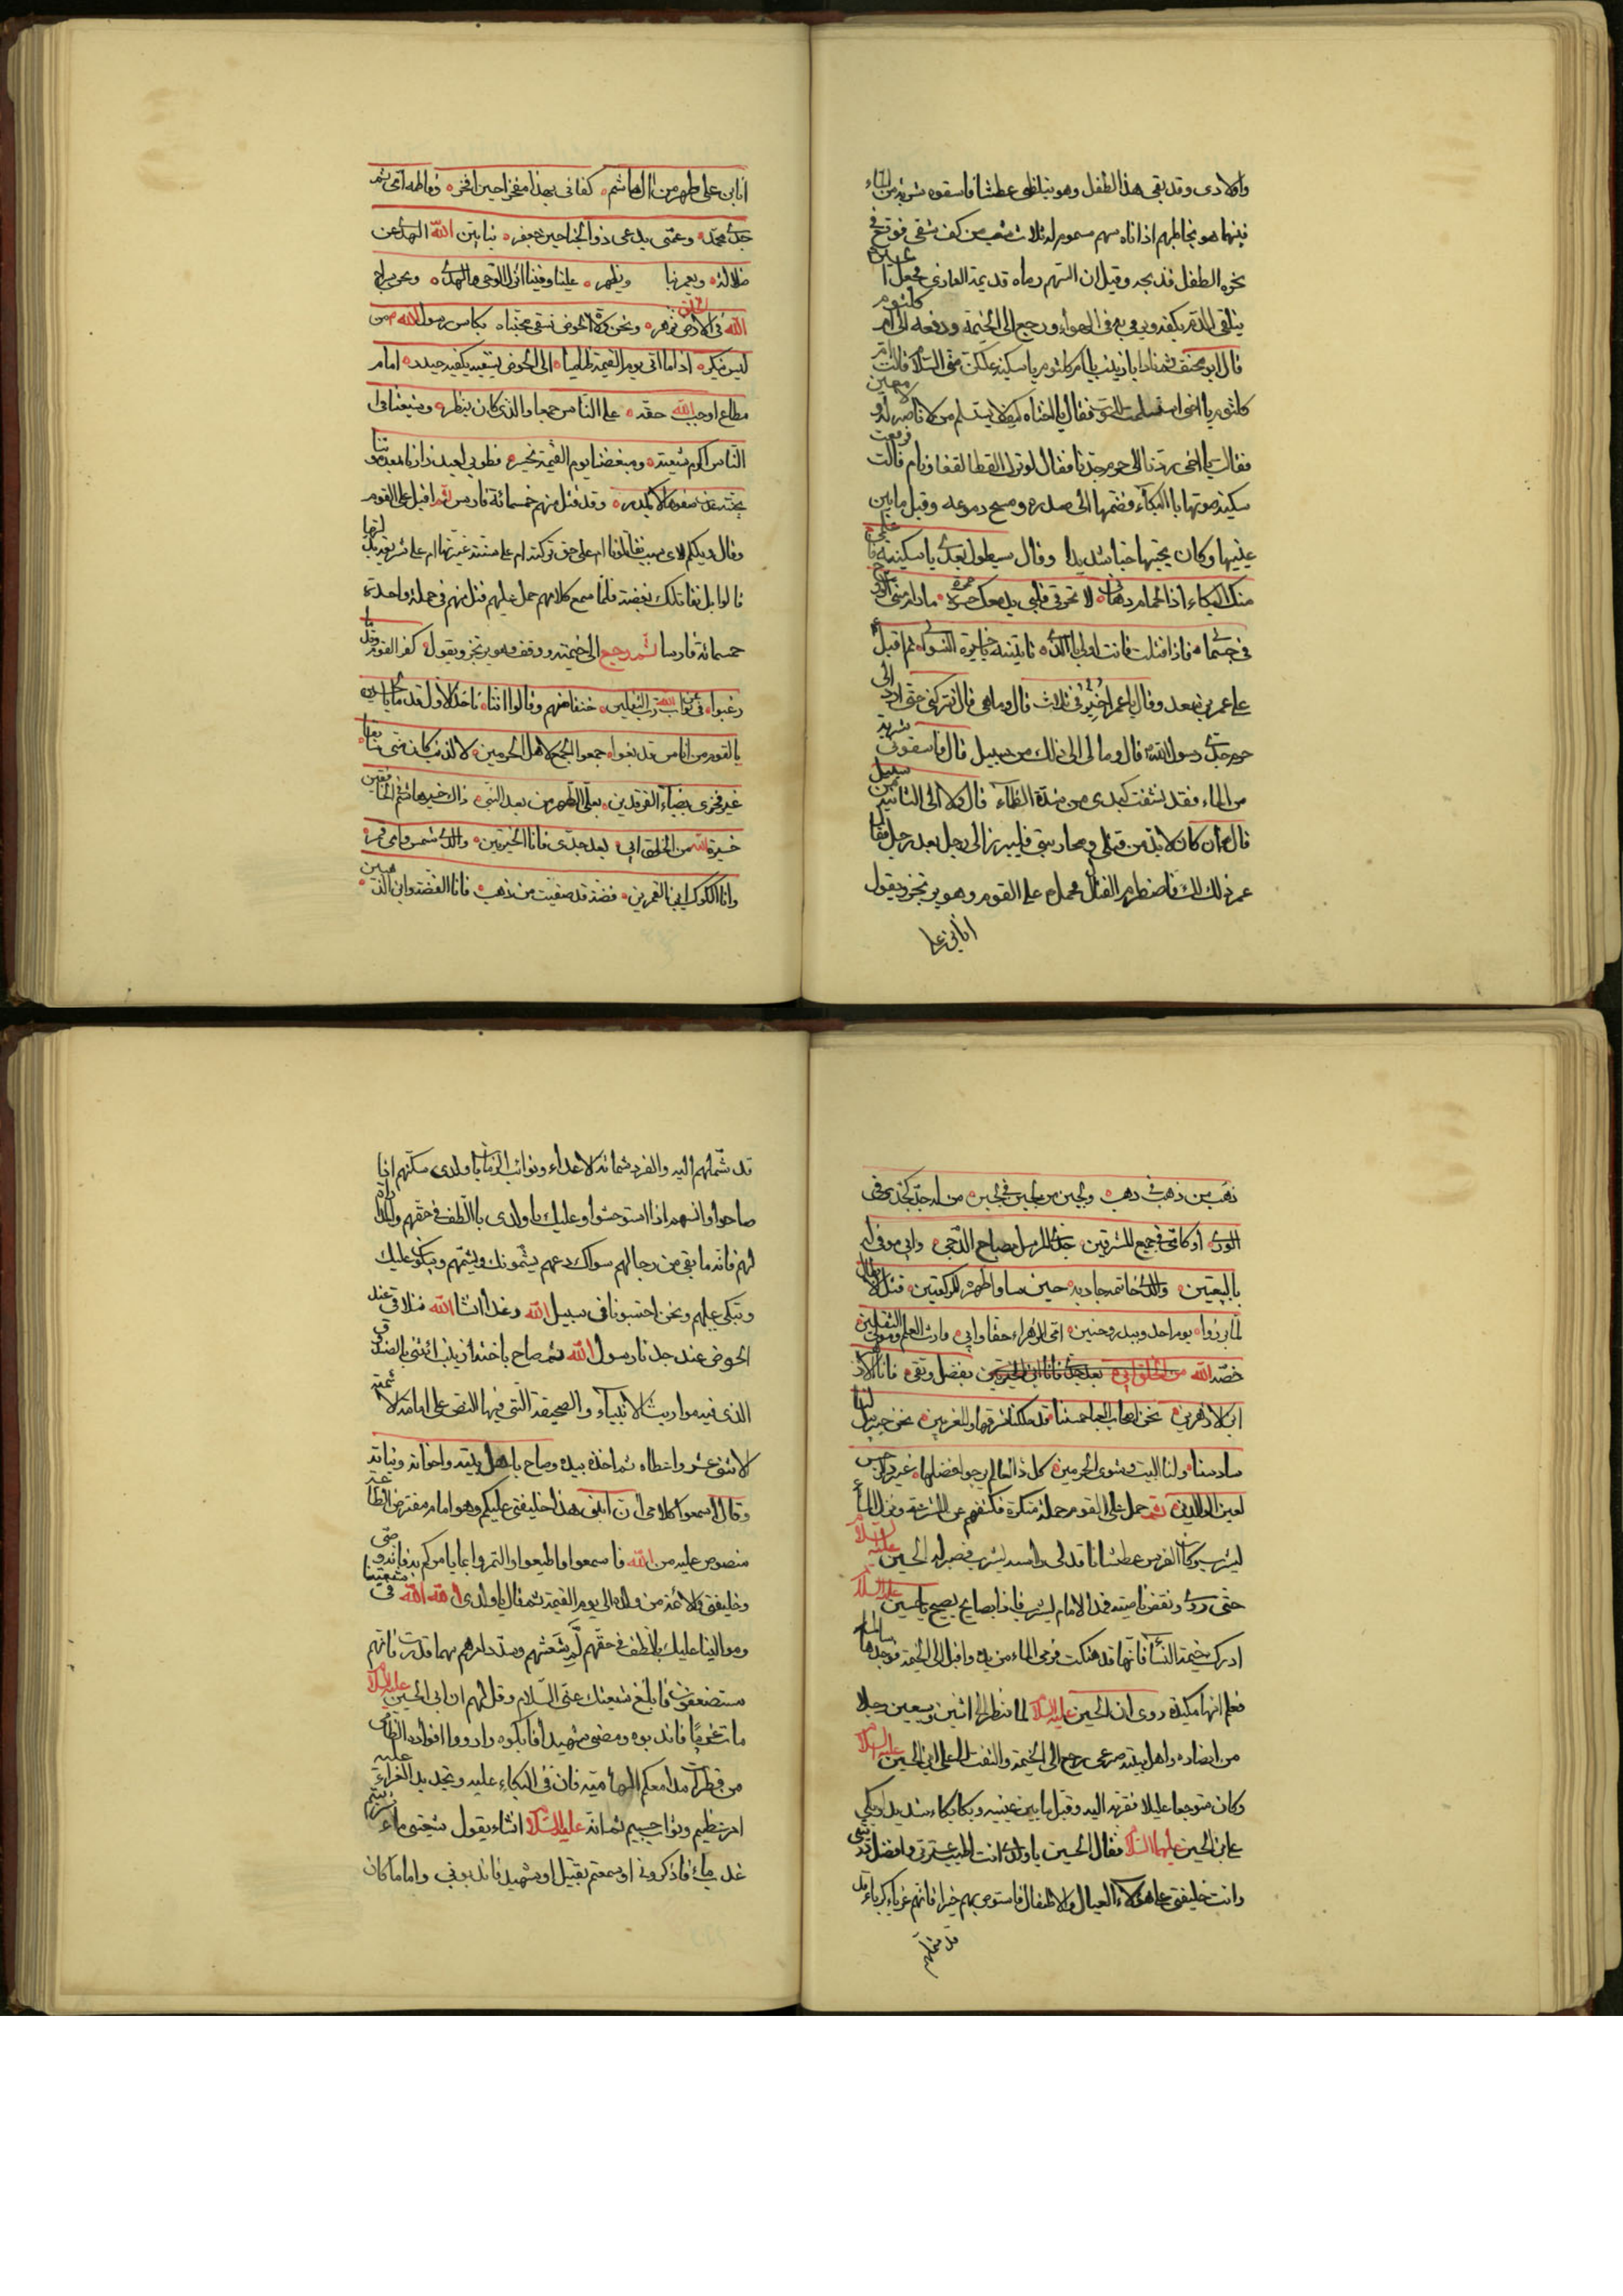 واولادى وقد بقى هذا الطفل وهو يتلظى عطشا فاسقوه شربة من الماء
فبينما هو يخاطبهم اذ اتاه سهم مسموم له ثلاث شعب من كف شقى فوقع فى
نحره الطفل فذبحه وقيل ان السهم رماه قديمة العامرى فجعل
يتلقى الدم بكفه ويرمى به فى الهواء ورجع الى الخيمة ودفعه الى ام كلثوم
قال ابو مخنف ثم نادا يا زينب يا ام كلثوم يا سكينة عليكن منى السلام فقالت ام
كلثوم يا اخى استسلمت للموت فقال يا اختاه كيف لا يستسلم من لا ناصر له ولا معين
فقالت يا اخى ردنا الى حرم جدنا فقال لو ترك القطا لغفا ونام فرفعت
سكينة صوتها بالبكاء فضمها الى صدره ومسح دموعه وقبل ما بين
عينيها وكان يحبها حبا شديدا وقال سيطول بعدى يا سكينة فاعلمى
منك البكاء اذا الحمام دهانى لا تحرقى قلبى بدمعك حسرة ما دام منى الروح
فى جسمانى فاذا قتلت فانت اولى بالذى تاتينه يا خيرة النسوان ثم اقبل
على عمر بن سعد وقال يا عمر اخيرك فى ثلاث قال وما هى قال تتركنى حتى ارد الى
حرم جدى رسول الله قال وما لى الى ذلك من سبيل قال فاسقونى شربة
من الماء فقد نشفت كبدى من شدة الظماء قال ولا الى الثانية من سبيل
قال وان كان لا بد من قتلى ومحاربتى فليبرز الى رجل بعد رجل فقال
عمر ذلك لك فاضطرم القتال فحمل على القوم وهو يرتجز ويقول
انا ابن على
انا ابن على طهر من آل هاشم كفانى بهذا مفخرا حين افخر وفاطمه امى ثم
جدى محمد وعمى يدعى ذو الجناحين جعفر بنا بين الله الهدى عن
ضلالة ويعمر بنا ويظهر علينا وفينا انزل الوحى والهدى ونحن سراج
الله فى الارض نزهر ونحن ولاة الحوض نسقى محبنا بكاس رسول الله من
ليس ينكر اذا ما اتى يوم القيمة ظاميا الى الحوض يسقيه بكفيه حيدر امام
مطاع اوجب الله حقه على الناس جميعا والذى كان ينظر وشيعتنا فى
الناس اكرم شيعة ومبغضنا يوم القيمة يخسر فطوبى لعبد زارنا بعد موتنا
بجنة عدن صفوها لا يكدر وقد قتل منهم خمسمائة فارس ثم اقبل على القوم
وقال ويلكم لاى سبب تقاتلونا ام على حق تركته ام على سنة غيرتها ام على شريعة بدلتها
قالوا بل نقاتلك بغضة فلما سمع كلامهم حمل عليهم فقتل منهم فى حملة واحدة
خمسمائة فارسا ثم رجع الى خيمته ووقف وهو يرتجز ويقول كفر القوم وقدما
رغبوا عن ثواب الله رب الثقلين
يا لقوم من اناس قد بغوا جمعوا الجمع لاهل الحرمين لا لذنب كان منى سابقا
غير فخرى بضياء الفرقدين بعلى الطهر من بعد النبى ذاك خير هاشم الخافقين
خيرة الله من الخلق ابى بعد جدى فانا الخيرتين والدى شمس وامى قمر
وانا الكوكب ابن القمرين فضة قد صفيت من ذهب فانا الفضة وابن الذهبين
ذهب من ذهب فى ذهب ولجين من لجين فى لجين من له جد كجدى فى
الورى او كامى فى جميع المشرقين جدى المرسل مصباح الدجى وابى موفى له
بالبيعتين والدى خاتمه جاد به حين ساوا ظهره للركعتين قتل الابطال
لما برزوا يوم احد وببدر وحنين امى الزهراء حقا وابى وارث العلم ومولى الثقلين
خصه الله بفضل وتقى فانا الازهر
ابن الازهرين نحن اصحاب العبا خمستنا قد ملكنا شرقها والمغربين نحن جبريل لنا
سادسنا ولنا البيت ومثوى الحرمين كل ذا العالم يرجوا فضلها
لعين الوالدين ثم حمل على القوم حملة منكرة فكشفهم عن المشرعة ونزل الماء
ليشرب وكان الفرس عطشانا فدلى راسه ليشرب فصبر له الحسين عليه السلام
حتى روى ونفض ناصيته فمد الامام ليشرب فاذا بصايح يصيح يا حسين عليه السلام
ادرك خيمة النساء فانها قد هتكت فرمى الماء من يده واقبل الى الخيمة فوجدها سالمة
فعلم انها مكيدة روى ان الحسين عليه السلام لما نظر الى اثنين وسبعين رجلا
من انصاره واهل بيته صرعى رجع الى الخيمة والتفت الى على ابن الحسين عليه السلام
وكان متوجعا عليلا فقربه اليه وقبل ما بين عينيه وبكا بكاء شديدا وبكى
على بن الحسين عليهما السلام فقال الحسين يا ولدى انت اطيب عترتى وافضل ذريتى
وانت خليفتى على هؤلاء العيال والاطفال فاستوص بهم خيرا فانهم غرباء كرباء قد
قد شملهم
قد شملهم اليه والفرد شماتة الاعداء ونوائب الزمان يا ولدى سكتهم اذا
صاحوا وآنسهم اذا استوحشوا وعليك يا ولدى باللطف فى حقهم
لهم فانه ما بقى من رجالهم سواك دعهم يشمونك وتشمهم ويبكون عليك
وتبكى عليهم ونحن احتسبونا فى سبيل الله وغدا انشا الله نتلاقى عند
الحوض عند جدنا رسول الله ثم صاح يا اختاه زينب ائتنى بالصندوق
الذى فيه مواريث الانبياء والصحيفة التى فيها النص على امامة الائمة
الاثنى عشر واعطاه ثم اخذه بيده وصاح يا اهل بيته واخواته وبناته
وقال اسمعوا كلامى ان ابنى هذا خليفتى عليكم وهو امام مفترض الطاعة
منصوص عليه من الله فاسمعوا واطيعوا والتمروا بما يامركم به فانه وصى
وخليفتى والائمة من ولده الى يوم القيمة ثم قال يا ولدى الله الله فى شيعتنا
وموالينا عليك باللطف فى حقهم لم شعثهم وسد حالهم مهما قدرت فانهم
مستضعفون فابلغ شيعتك عنى السلام وقل لهم ان ابى الحسين عليه السلام
مات غريبا فاندبوه ومضى شهيدا فابكوه وارووا افواه الظامى
من قطرات مدامعكم الهامية فان فى البكاء عليه وتجديد العزاء
اجر عظيم وثواب جسيم ثم انه عليه السلام انشاء يقول شيعتى ماء
عذب ماء فاذكرونى او سمعتم بقتيل او شهيد فاندبونى واما ما كان